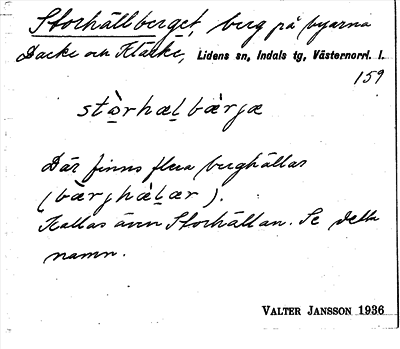 Storhällberget, berg på byarna
Backe och Kläcke, Lidens sn, Indals tg, Västernorrl. l.
159
stòrhælbæ̀rjæ
Där finns flera berghällar
(bæ̀rjhæ̀lær).
Kallas även Storhällan. Se detta
namn.
VALTER JANSSON 1936